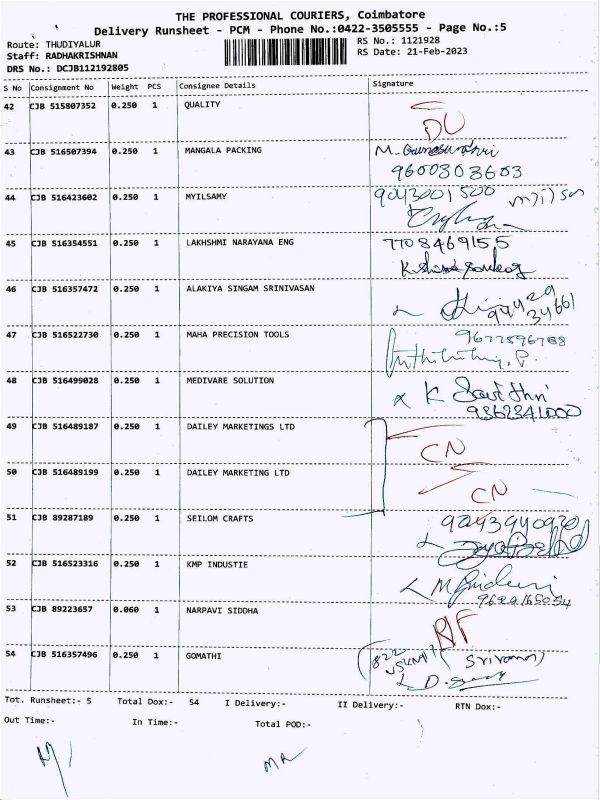 THE PROFESSIONAL COURIERS, Coimbatore
Delivery Runsheet - PCM - Phone No.:0422-3505555 - Page No.:5
Route: THUDIYALUR RS No.: 1121928
Staff: RADHAKRISHNAN RS Date: 21-Feb-2023
DRS No.: DCJB112192805
S No Consignment No Weight PCS Consignee Details Signature
42 CJB 515807352 0.250 1 QUALITY
DU
43 CJB 516507394 0.250 1 MANGALA PACKING M.
9600303603
44 CJB 516423602 0.250 1 MYILSAMY 9043001500
45 CJB 516354551 0.250 1 LAKHSHMI NARAYANA ENG 7708469155
46 CJB 516357472 0.250 1 ALAKIYA SINGAM SRINIVASAN
99429
34661
47 CJB 516522730 0.250 1 MAHA PRECISION TOOLS
48 CJB 516499028 0.250 1 MEDIVARE SOLUTION K
9362341000
49 CJB 516489187 0.250 1 DAILEY MARKETINGS LTD
CN
50 CJB 516489199 0.250 1 DAILEY MARKETING LTD
CN
51 CJB 89287189 0.250 1 SEILOM CRAFTS
52 CJB 516523316 0.250 1 KMP INDUSTIE
53 CJB 89223657 0.060 1 NARPAVI SIDDHA
54 CJB 516357496 0.250 1 GOMATHI
Tot. Runsheet:- 5 Total Dox:- 54 I Delivery:- II Delivery:- RTN Dox:-
Out Time:- In Time:- Total POD:-